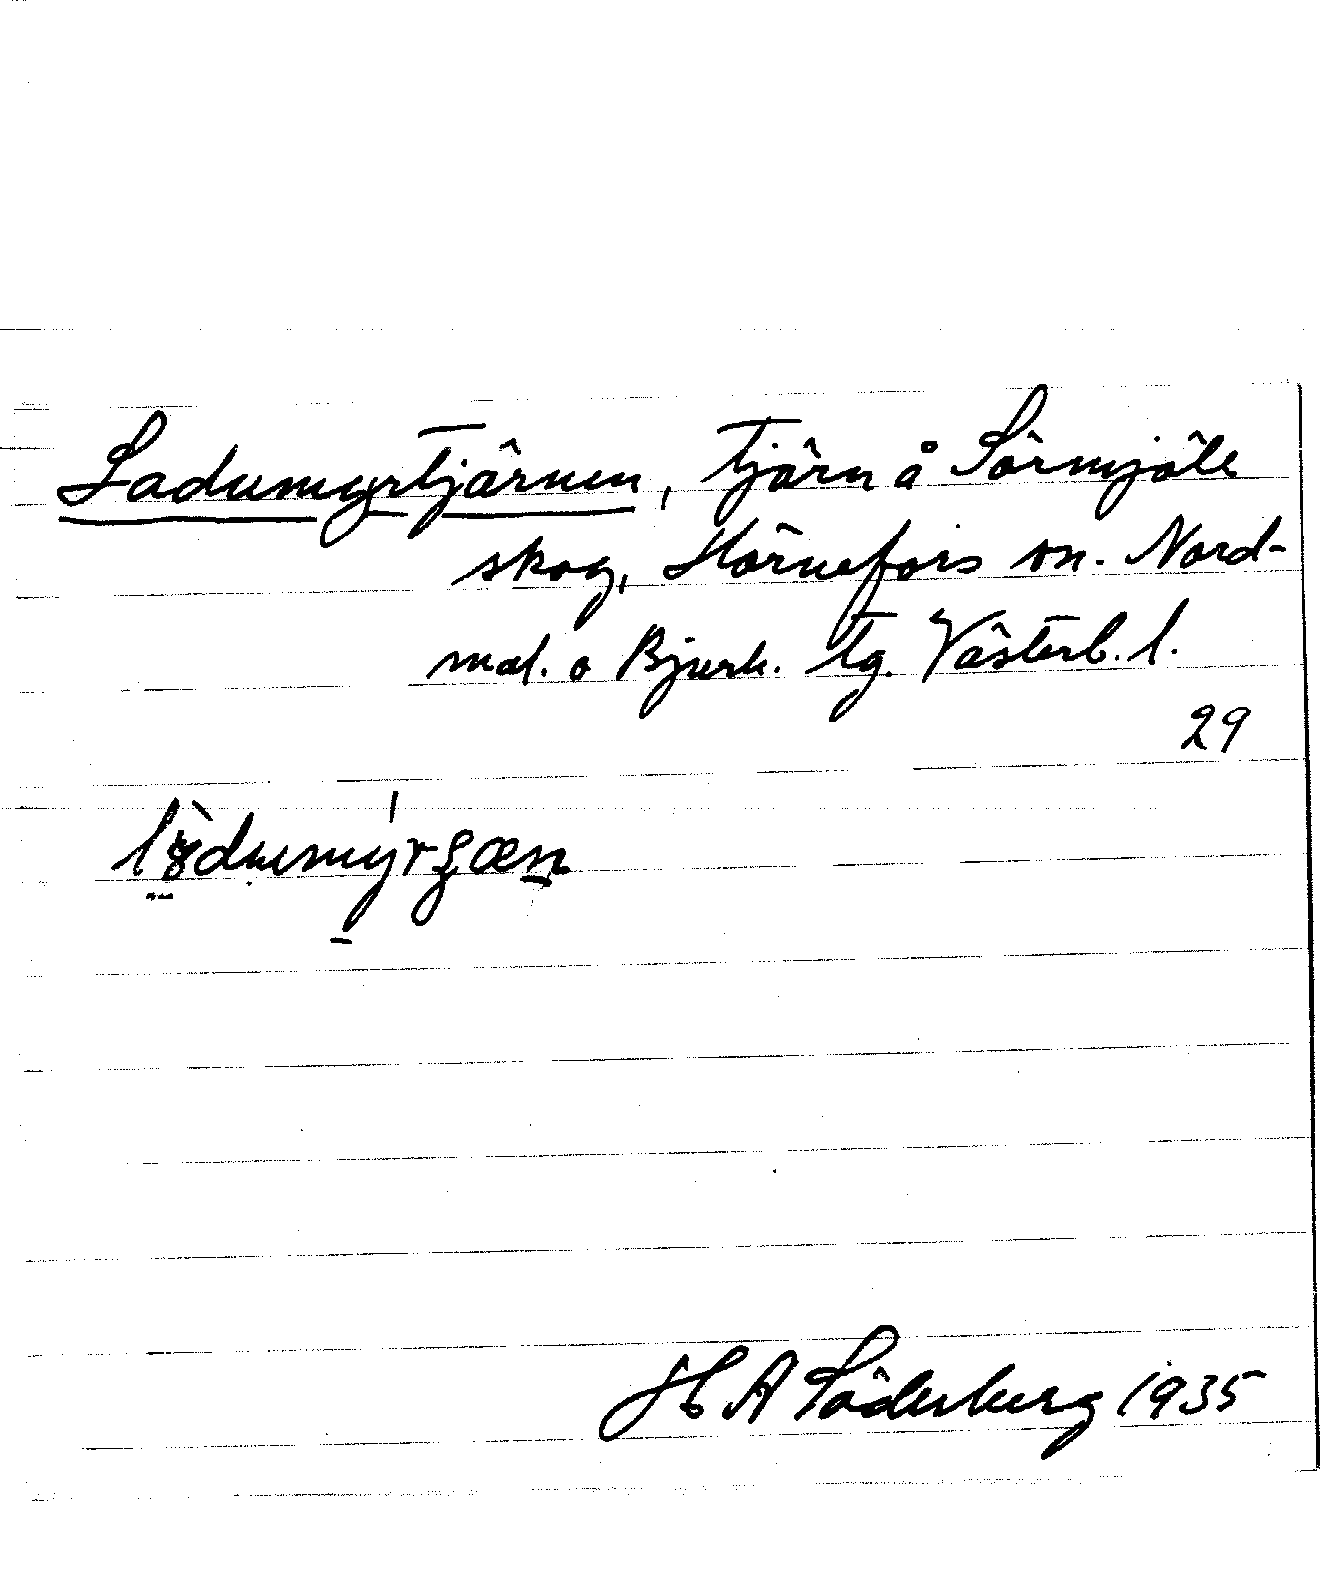 Ladumyrtjärnen, tjärn å Sörmjöle
skog, Hörnefors sn. Nord-
mal. o Bjurh. tg. Västerb. l.
29
H A Söderberg 1935